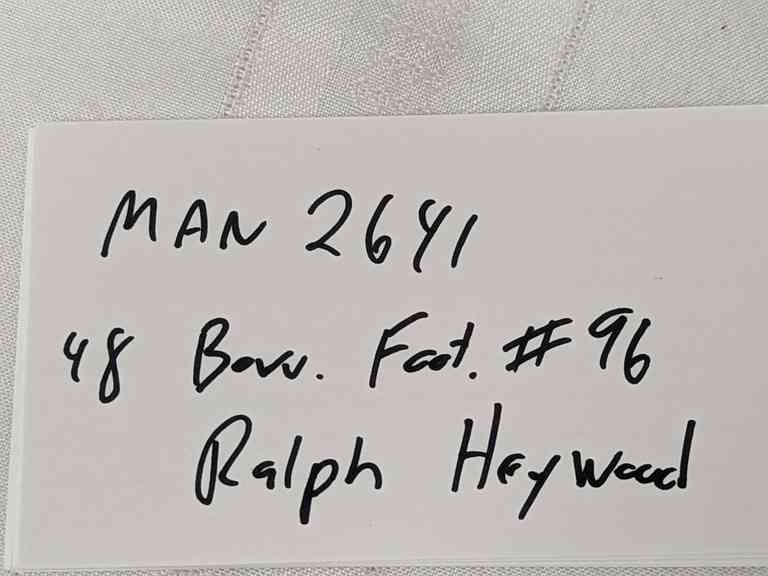 MAN 2641
48 Bow. Foot. #96
Ralph Heywood